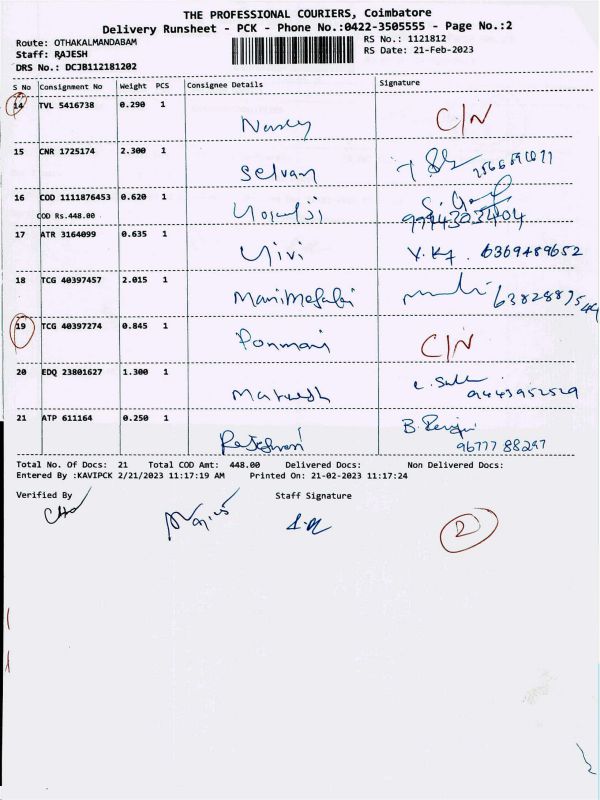 THE PROFESSIONAL COURIERS, Coimbatore
Delivery Runsheet - PCK - Phone No.:0422-3505555 - Page No.:2
Route: OTHAKALMANDABAM
RS No.: 1121812
Staff: RAJESH
RS Date: 21-Feb-2023
DRS No.: DCJB112181202
S No Consignment No Weight PCS Consignee Details Signature
14 TVL 5416738 0.290 1 C/N
15 CNR 1725174 2.300 1 Selvam
16 COD 1111876453 0.620 1
COD Rs.448.00 9944303404
17 ATR 3164099 0.635 1 Vivi V.K 6369489652
18 TCG 40397457 2.015 1
19 TCG 40397274 0.845 1 Ponmani C/N
20 EDQ 23801627 1.300 1 9443952529
21 ATP 611164 0.250 1 Rajeshwari 96777 88297
Total No. Of Docs: 21 Total COD Amt: 448.00 Delivered Docs: Non Delivered Docs:
Entered By :KAVIPCK 2/21/2023 11:17:19 AM Printed On: 21-02-2023 11:17:24
Verified By Staff Signature
2